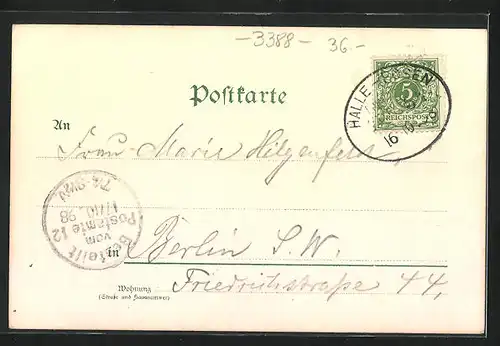 -3388- 36.-
Postkarte
HALLE
5
REICHSPOST
16
An
Frau Marie Hilgenfeld,
Bestellt
vom
Postamte 12
17/10. 98
in Berlin S.W.
Friedrichstraße 44,
Wohnung
(Straße und Hausnummer)